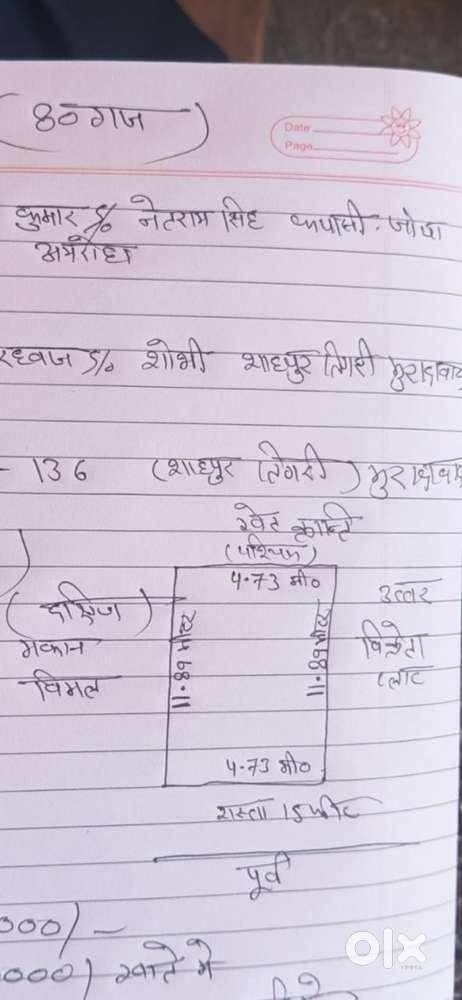 (80 गज)
Date
Page
कुमार S/o नेतराम सिंह जोया
अमरोहा
रध्वज S/o शोभी शाहपुर तिगरी मुरादाबाद
- 136 (शाहपुर तिगरी) मुरादाबाद
खेत क्रान्ति
(पश्चिम)
4.73 मी०
(दक्षिण)
मकान
विमल
11.89 मीटर
11.89 मीटर
उत्तर
विक्रेता
प्लाट
4.73 मी०
रास्ता 15 फीट
पूर्व
000/-
000) खाते मे
olx
INDIA